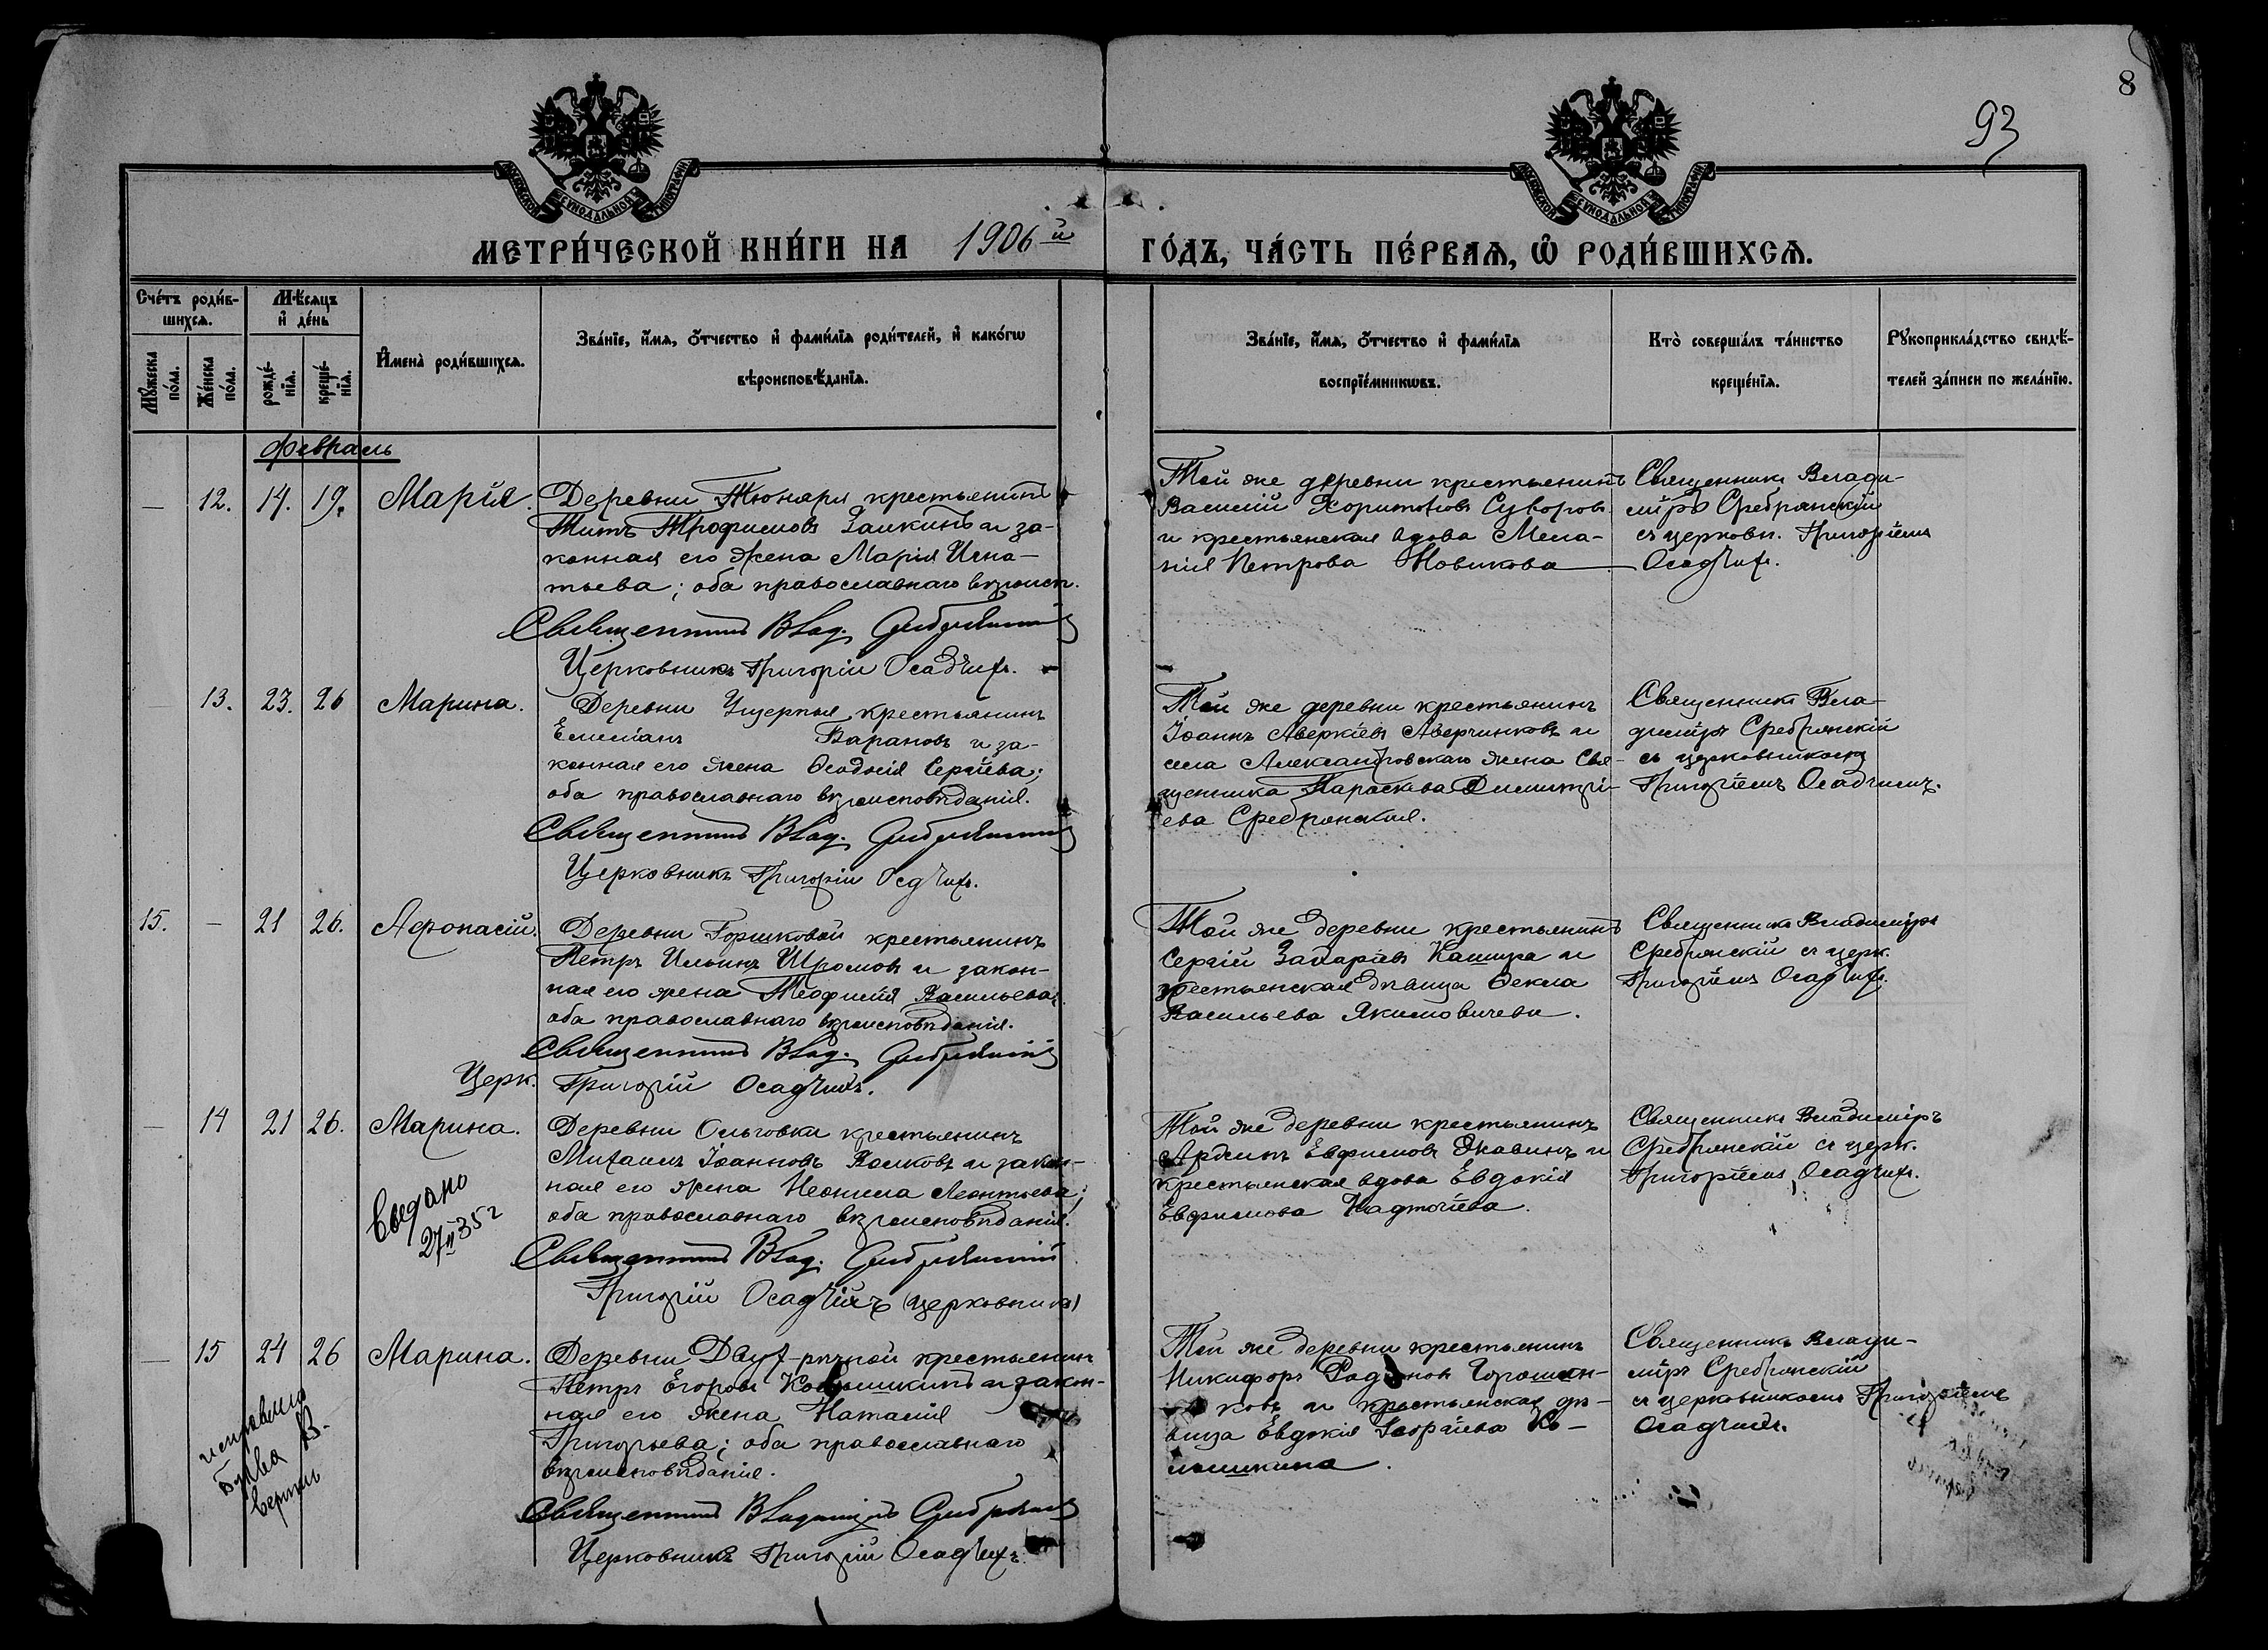 8
93
МОСКОВСКОЙ СѴНОДАЛЬНОЙ ТИПОГРАФІИ
МОСКОВСКОЙ СѴНОДАЛЬНОЙ ТИПОГРАФІИ
МЕТРИ́ЧЕСКОЙ КНИ́ГИ НА 1906й ГО́ДЪ, ЧА́СТЬ ПЕ́РВАѦ, Ѡ҆ РОДИ́ВШИХСѦ.
Сче́тъ роди́в-
шихсѧ.
Мꙋ́жеска по́ла.
Же́нска по́ла.
Мѣ́сѧцъ
и҆ де́нь
рожде́-
нїѧ.
креще́-
нїѧ.
И҆мена̀ роди́вшихсѧ.
Зва́нїе, и҆́мѧ, ѻ҆́тчество и҆ фами́лїѧ роди́телей, и҆ како́гѡ
вѣроисповѣ́данїѧ.
Зва́нїе, и҆́мѧ, ѻ҆́тчество и҆ фами́лїѧ
воспрїе́мникѡвъ.
Кто̀ соверша́лъ та́инство
креще́нїѧ.
Рꙋкоприкла́дство свидѣ́-
телей за́писи по жела́нїю.
Февраль
— 12. 14. 19. Марія.
Деревни Тюняри крестьянинъ
Титъ Трофимовъ Заикинъ и за-
конная его жена Марія Игна-
тьева; оба православнаго вѣроисп.
Священникъ Влад. Сребрянскій
Церковникъ Григорій Осадчихъ.
Той же деревни крестьянинъ
Василій Харитоновъ Суворовъ
и крестьянская вдова Мела-
нія Петрова Новикова
Священникъ Влади-
міръ Сребрянскій
съ церковн. Григоріемъ
Осадчихъ.
13. 23. 26 Марина.
Деревни Ущерпья крестьянинъ
Емеліанъ Барановъ и за-
конная его жена Ѳеодосія Сергіева;
оба православнаго вѣроисповѣданія.
Священникъ Влад. Сребрянскій
Церковникъ Григорій Осдчихъ.
Той же деревни крестьянинъ
Іоаннъ Аверкіевъ Аверчинковъ и
села Александровскаго жена Свя-
щенника Параскева Димитрі-
ева Сребрянская.
Священникъ Вла-
диміръ Сребрянскій
съ церковникомъ
Григоріемъ Осадчимъ.
15. — 21 26. Аѳонасій.
Деревни Горшковой крестьянинъ
Петръ Ильинъ Шромовъ и закон-
ная его жена Теофилія Васильева;
оба православнаго вѣроисповѣданія.
Священникъ Влад. Сребрянскій
Церк. Григорій Осадчихъ.
Той же деревни крестьянинъ
Сергій Захаріевъ Кашира и
крестьянская дѣвица Ѳекла
Васильева Якимовичева.
Священникъ Владиміръ
Сребрянскій съ церк.
Григоріемъ Осадчихъ.
— 14 21 26. Марина.
Деревни Ольговки крестьянинъ
Михаилъ Іоанновъ Волковъ и закон-
ная его жена Неонила Леонтьева;
оба православнаго вѣроисповѣданія.
Священникъ Влад. Сребрянскій
Григорій Осадчихъ (церковникъ)
Выдано
27 II 35 г
Той же деревни крестьянинъ
Евфимовъ и
крестьянская вдова Евдокія
Евфимова Надточіева.
Священникъ Владиміръ
Сребрянскій съ церк.
Григоріемъ Осадчихъ.
— 15 24 26 Марина.
Деревни Двух-рѣчной крестьянинъ
Петръ Егоровъ и закон-
ная его жена Наталія
Григорьева; оба православнаго
вѣроисповѣданія.
Священникъ Владиміръ Сребрянскій
Церковникъ Григорій Осадчихъ.
исправлено
буква В.
верить
Той же деревни крестьянинъ
Никифоръ Родіоновъ Горошин-
ковъ и крестьянская дѣ-
вица Евдокія Георгіева Ко-
мошкина.
Священникъ Влади-
міръ Сребрянскій
съ церковникомъ Григоріемъ
Осадчихъ.